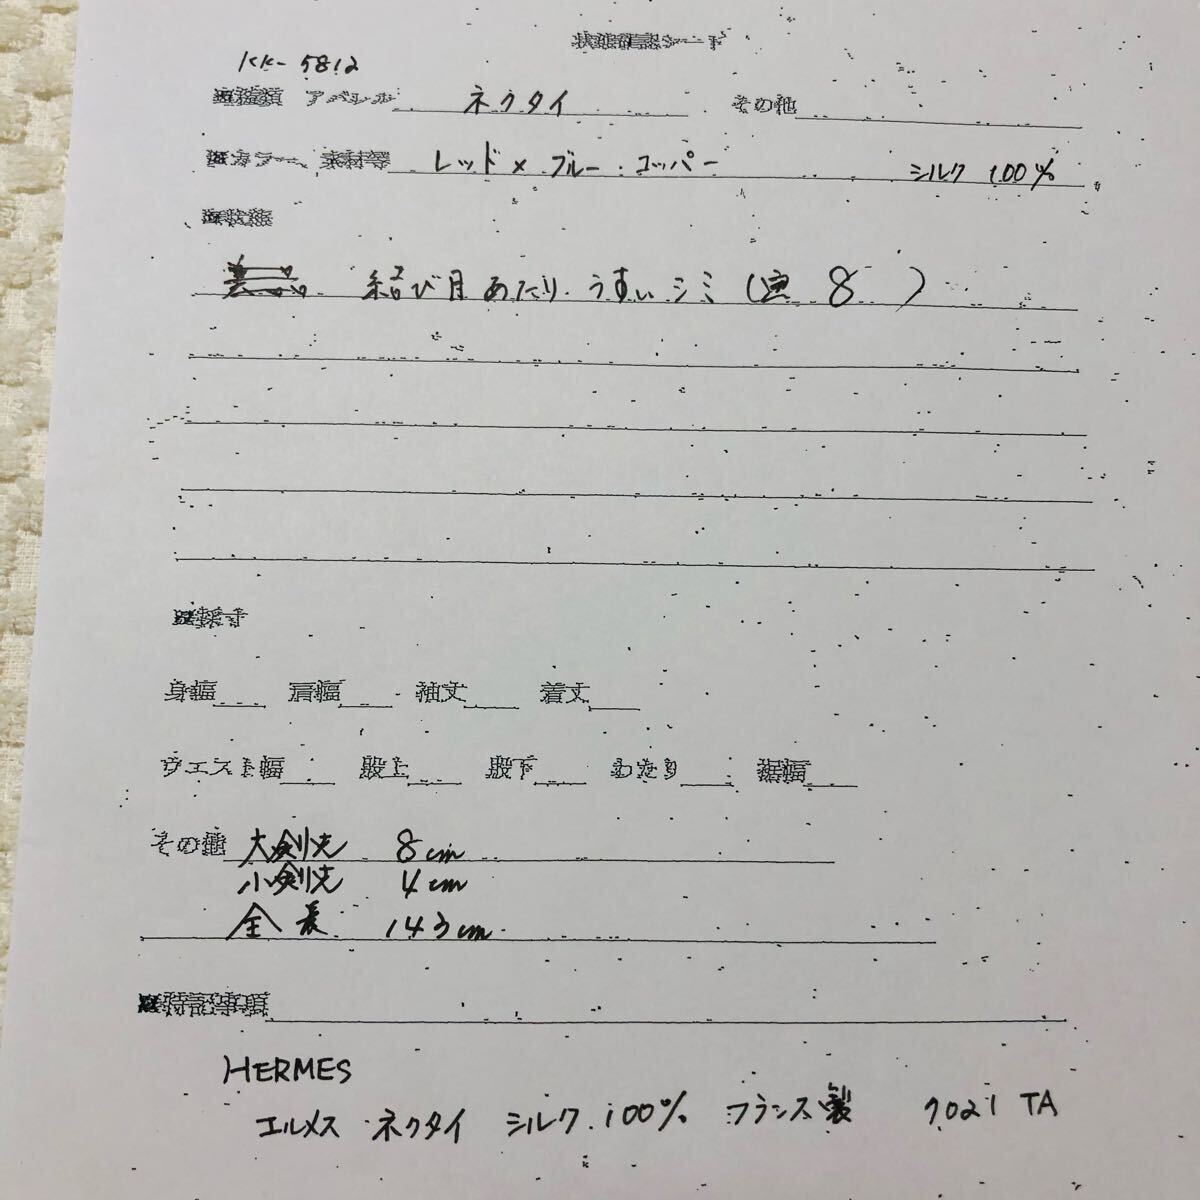 状態確認シート
KK-5812
■種類 アパレル ネクタイ その他
■カラー、素材等 レッド×ブルー.コッパー シルク 100%
■状態
結び目あたり.うすいシミ( 8 )
■採寸
身幅 肩幅 袖丈 着丈
ウエスト幅 股上 股下 わたり 裾幅
その他 大剣先 8cm
小剣先 4cm
全長 143cm
■特記事項
HERMES
エルメス ネクタイ シルク.100% フランス製 7021 TA